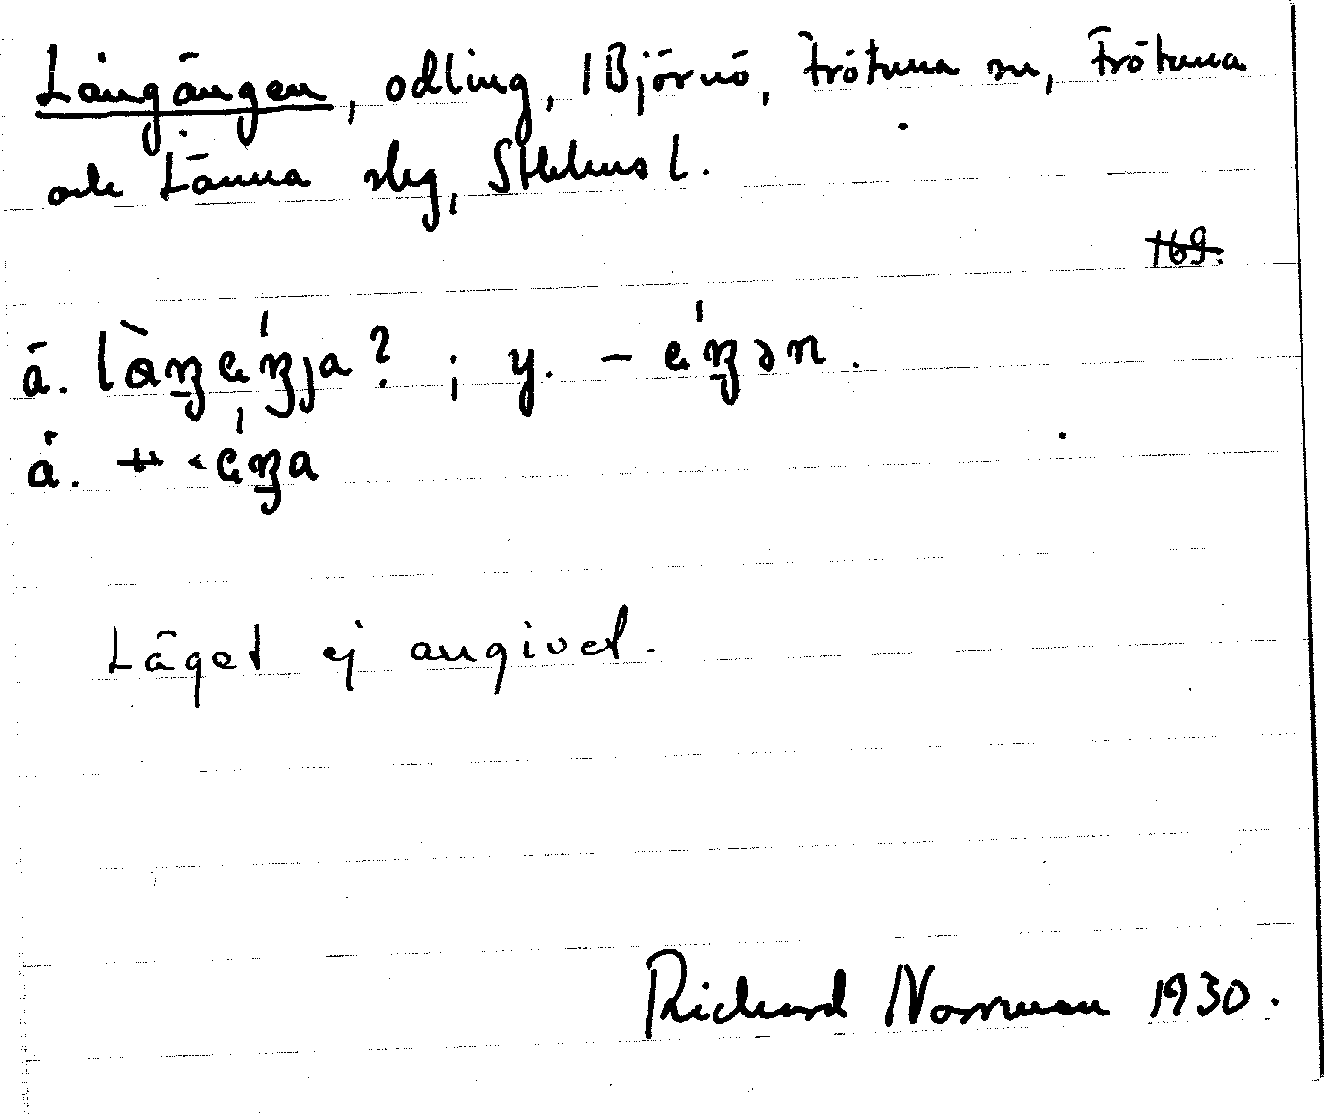 Långängen, odling, 1 Björnö, Frötuna sn, Frötuna
och Länna slg, Sthlms l.
169.
ä. làŋɛ́ŋja? ; y. - ɛ́ŋən.
ä. -"- -ɛ́ŋa
Läget ej angivet.
Richard Norrman 1930.